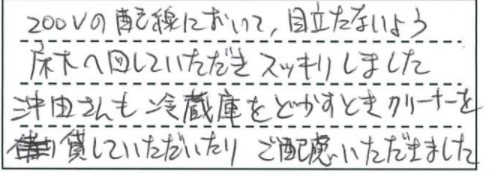 200Vの配線において,目立たないよう
床下へ回していただきスッキリしました
沖田さんも冷蔵庫をどかすときクリーナーを
貸していただいたり ご配慮いただきました